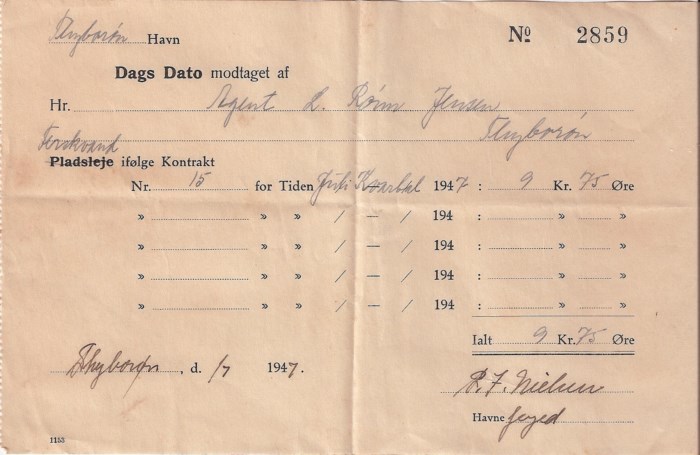 Thyborøn Havn No 2859
Dags Dato modtaget af
Hr. Agent L. Røim Jensen
Thyborøn
Ferskvand
Pladsleje ifølge Kontrakt
Nr. 15 for Tiden Juli Kvartal 1947 : 9 Kr. 75 Øre
» » » / — / 194 : » »
» » » / — / 194 : » »
» » » / — / 194 : » »
» » » / — / 194 : » »
Ialt 9 Kr. 75 Øre
Thyborøn, d. 1/7 1947.
Nielsen
Havnefoged
1153